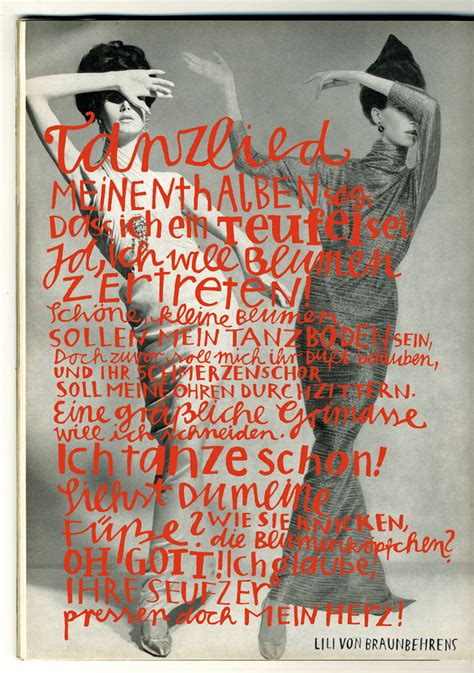 Tanzlied
MEINENTHALBEN sag,
Dass ich ein TEUFEL sei.
Ja, ich will Blumen
ZERTRETEN!
Schöne, kleine Blumen
SOLLEN MEIN TANZBODEN SEIN,
Doch zuvor soll mich ihr Duft umhüllen,
UND IHR SCHMERZENSCHOR
SOLL MEINE OHREN DURCHZITTERN.
Eine gräßliche Grimasse
will ich schneiden.
Ich tanze schon!
Siehst Du meine
Füße? WIE SIE KNICKEN,
die Blumenköpfchen?
OH GOTT! Ich glaube,
IHRE SEUFZER
pressen doch MEIN HERZ!
LILI VON BRAUNBEHRENS